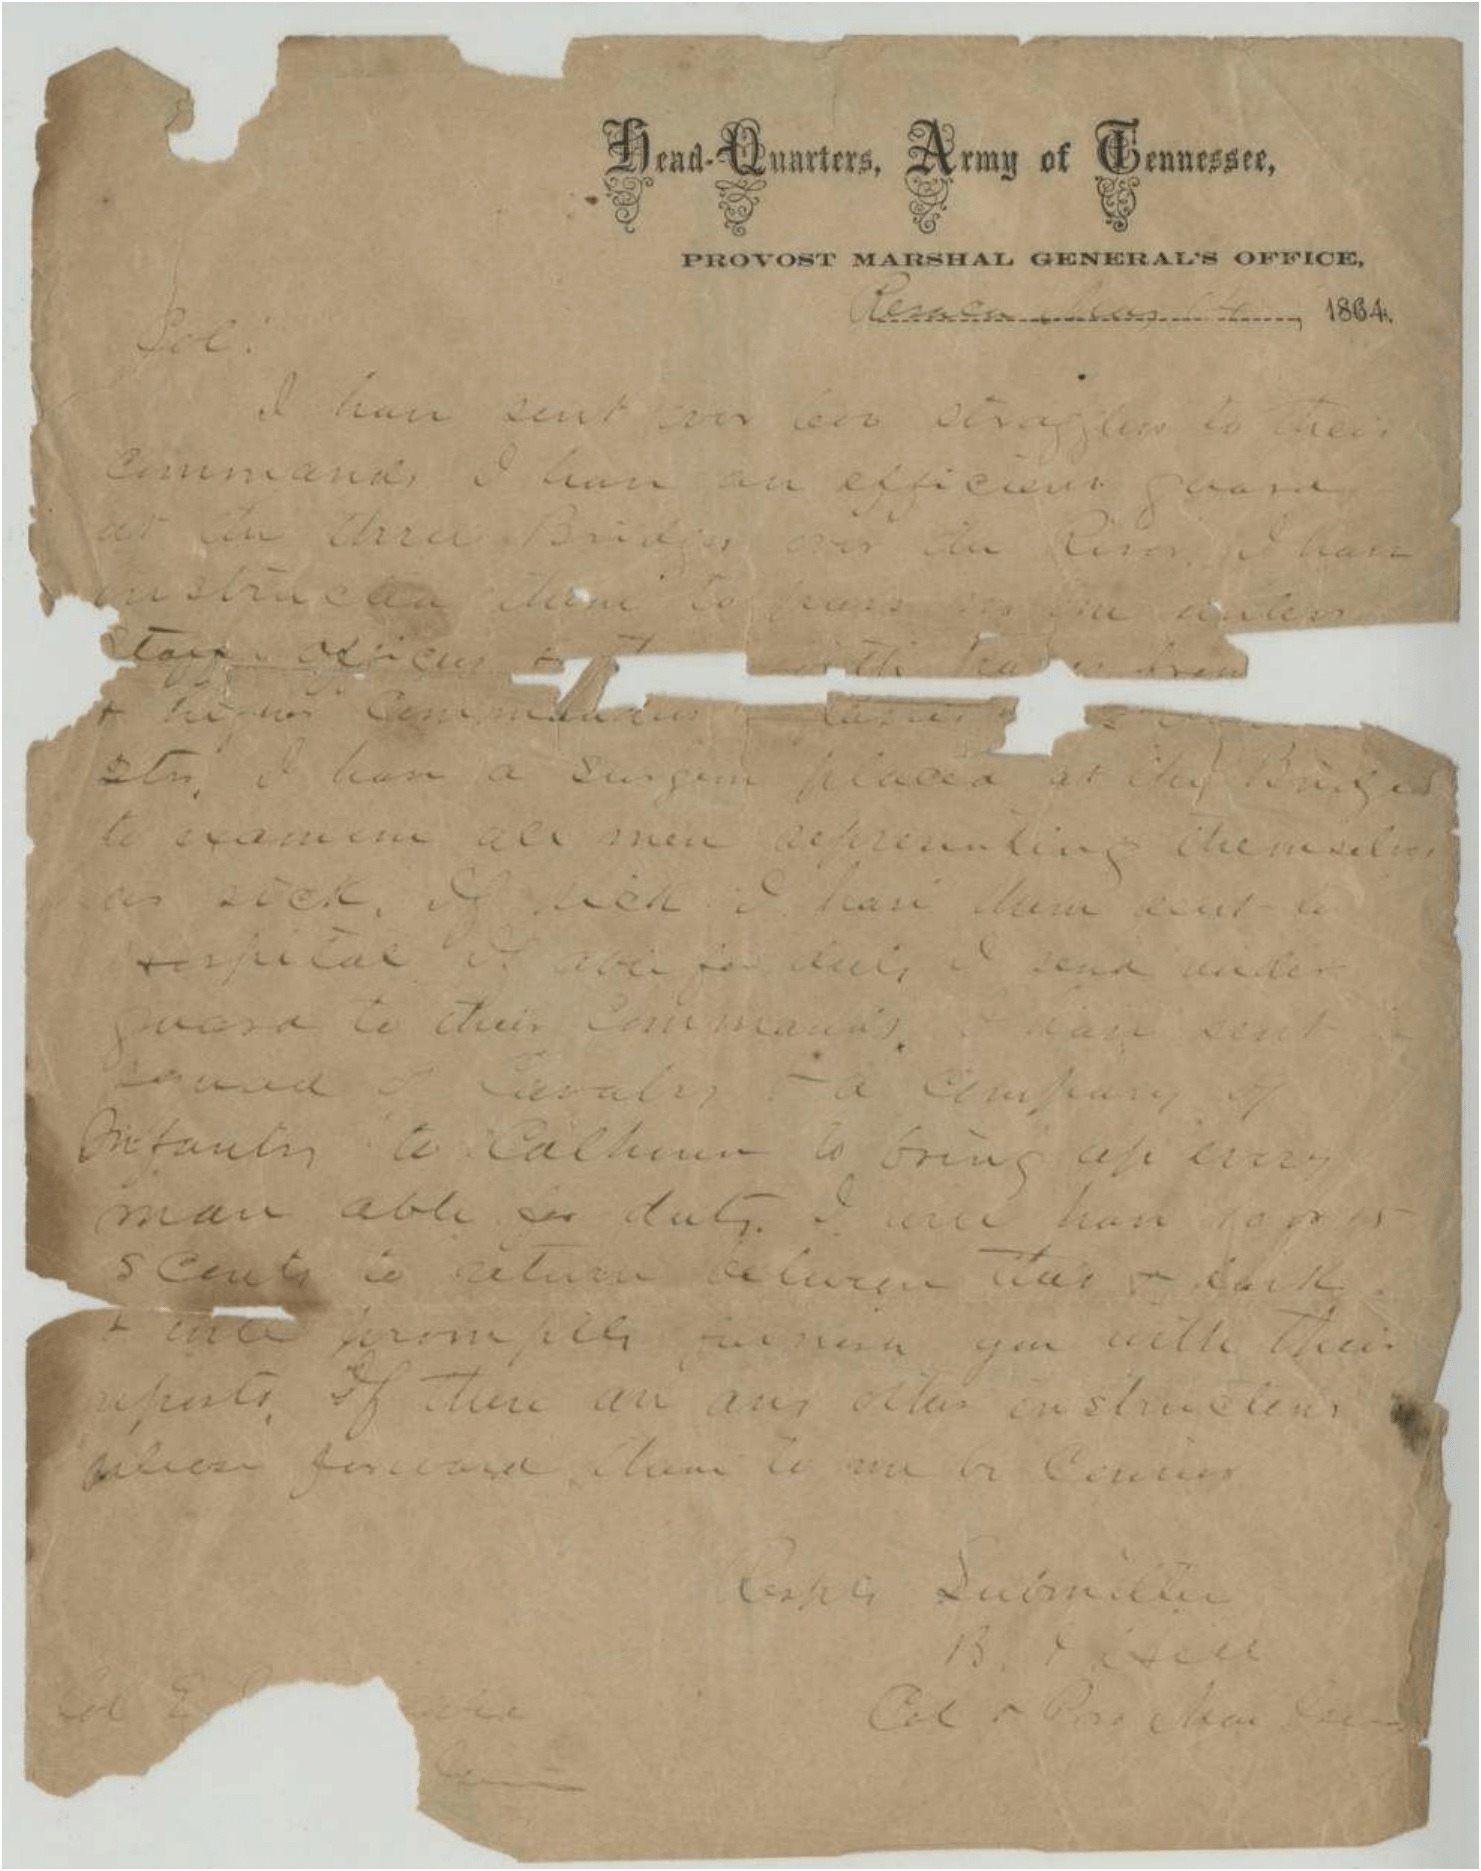 Head-Quarters, Army of Tennessee,
PROVOST MARSHAL GENERAL'S OFFICE,
Resaca May 14 1864.
Col:
I have sent over stragglers to their
commands I have an efficient guard
at the three Bridges over the River. I have
instructed them to pass no one unless
Staff officers &
& higher Commanders
I have a surgeon placed at the Bridges
to examine all men representing themselves
as sick. If sick I have them sent to
Hospital If able for duty I send under
guard to their Commands. I have sent
squad of Cavalry & a Company of
Infantry to Calhoun to bring up every
man able for duty. I will have
Scouts to return between this & dark
& will promptly furnish you with their
reports. If there are any other instructions
please forward them to me by Courier
Resply Submitted
B. J. Hill
Col & Pro Mar Gen
Col E